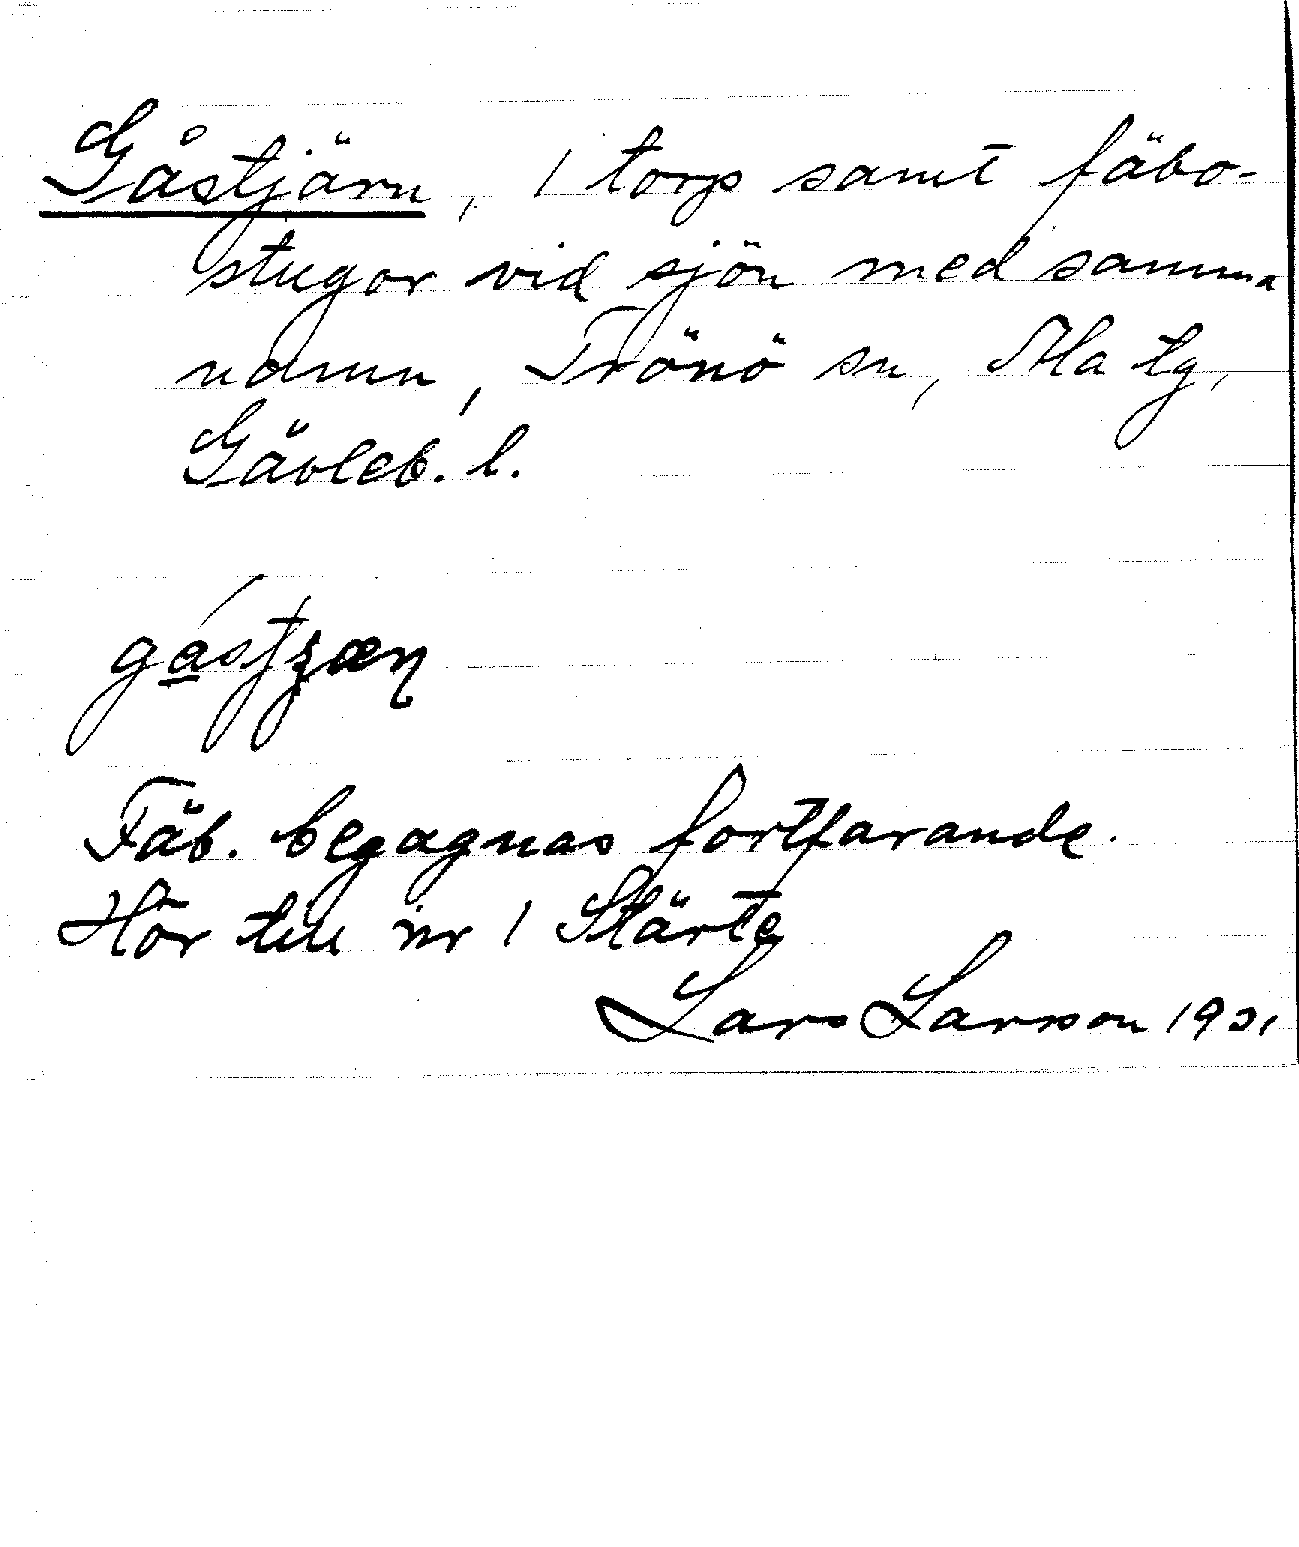 Gåstjärn, 1 torp samt fäbo-
stugor vid sjön med samma
namn, Trönö sn, Ala tg,
Gävleb. l.
Fäb. begagnas fortfarande.
Hör till nr 1 Stärte
Lars Larson